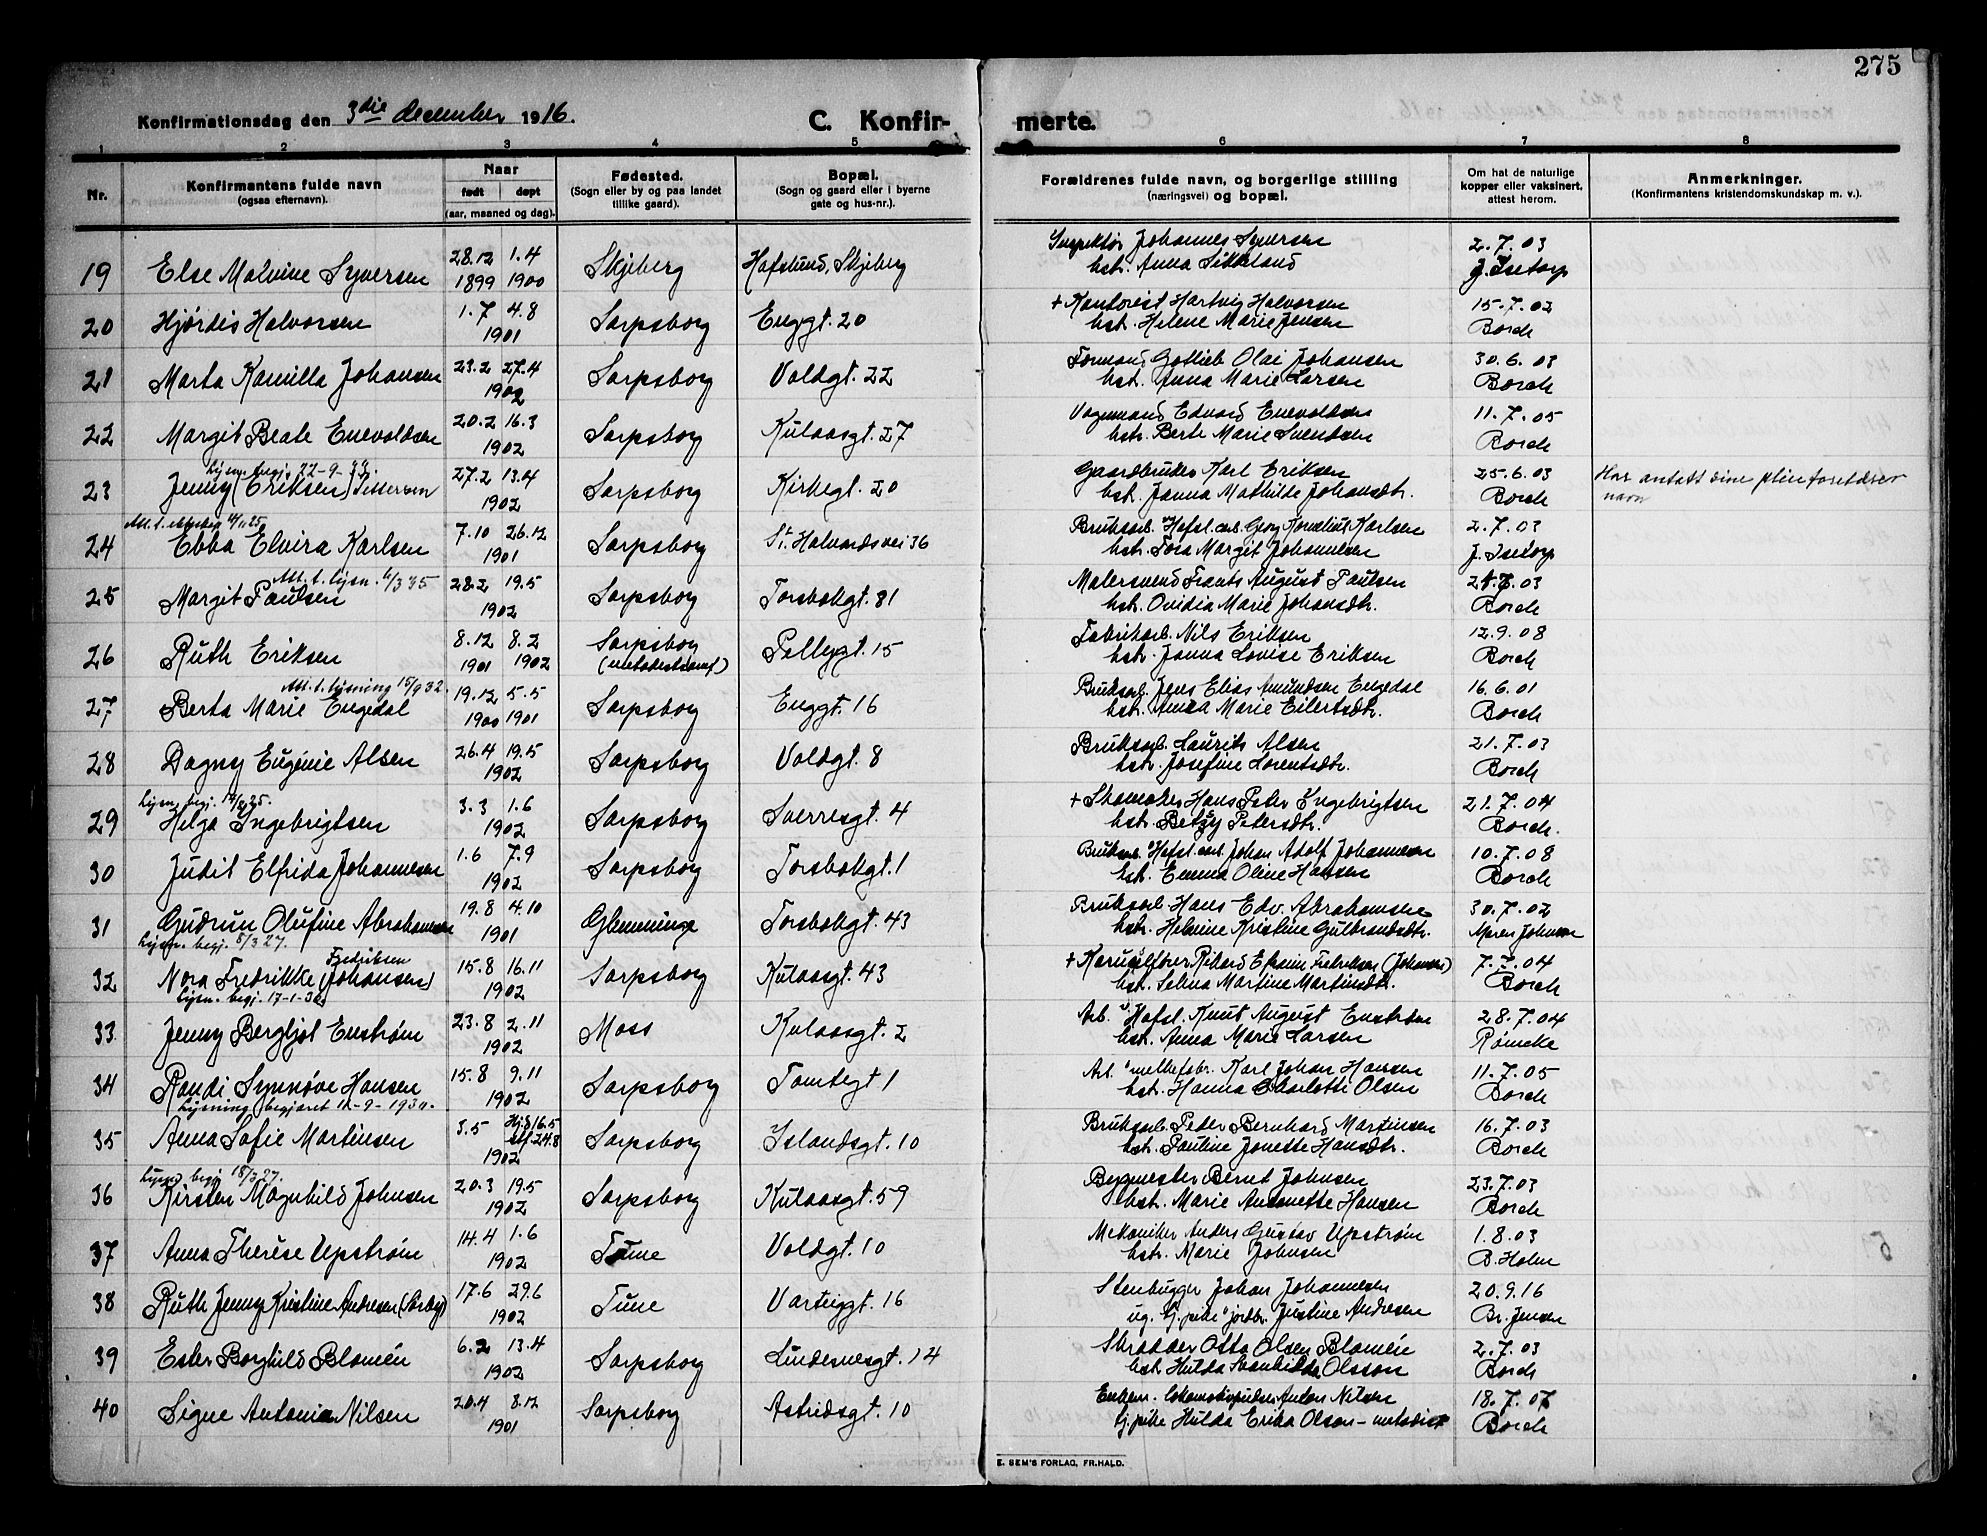 275
Konfirmationsdag den 3die december 1916.
C. Konfir-merte.
1 2 3 4 5 6 7 8
Nr.
Konfirmantens fulde navn
(ogsaa efternavn).
Naar
født døpt
(aar, maaned og dag).
Fødested.
(Sogn eller by og paa landet
tillike gaard).
Bopæl.
(Sogn og gaard eller i byerne
gate og hus-nr.).
Forældrenes fulde navn, og borgerlige stilling
(næringsvei) og bopæl.
Om hat de naturlige
kopper eller vaksinert,
attest herom.
Anmerkninger.
(Konfirmantens kristendomskundskap m. v.).
19 Else Malvine Syversen 28.12 1.4 Skjeberg Hafslund, Skjeberg Inspektør Johannes Syversen 2.7.03
1899 1900 hst. Anna J. Isetorp
20 Hjørdis Halvorsen 1.7 4.8 Sarpsborg Enggt. 20 + Kontorist Hartvig Halvorsen 15.7.02
1901 hst. Helene Marie Jensen Borch
21 Marta Kamilla Johansen 23.2 27.4 Sarpsborg Voldgt. 22 Formand Gotlieb Olai Johansen 30.6.03
1902 hst. Anna Marie Larsen Borch
22 Margit Beate Enevoldsen 20.2 16.3 Sarpsborg Kulaasgt. 27 Vognmand Edvard Enevoldsen 11.7.05
1902 hst. Berte Marie Svendsen Borch
Lysn. begj. 22-9-33.
23 Jenny (Eriksen) Pettersen 27.2 13.4 Sarpsborg Kirkegt. 20 Gaardbruker Karl Eriksen 25.6.03 Har antatt sine pleieforeldres
1902 hst. Janna Mathilde Johansdtr. Borch navn
Att. t. ektskap 4/11 25
24 Ebba Elvira Karlsen 7.10 26.12 Sarpsborg St. Halvardsvei 36 Bruksarb. Hafsl. carb. Georg Kornelius Karlsen 2.7.03
1901 hst. Tora Margit Johannesen J. Isetorp
Att. t. lysn. 6/3 35
25 Margit Paulsen 28.2 19.5 Sarpsborg Torsbekgt. 81 Malersvend Frants August Paulsen
1902 hst. Ovidia Marie Johansdtr. Borch
26 Ruth Eriksen 8.12 8.2 Sarpsborg Pellygt. 15 Fabrikarb. Nils Eriksen 12.9.08
1901 1902 (metodistsamf) hst. Janna Lovise Eriksen Borch
Att. t. lysning 15/9 32.
27 Berta Marie Engedal 19.12 5.5 Sarpsborg Enggt. 16 Bruksarb. Jens Elias Amundsen Engedal 16.6.01
1900 1901 hst. Anna Marie Eilertsdtr. Borch
28 Dagny Eugenie Alsen 26.4 19.5 Sarpsborg Voldgt. 8 Bruksarb. Laurits Alsen 21.7.03
1902 hst. Josefine Lorentsdtr. Borch
29 Helga Ingebrigtsen 3.3 1.6 Sarpsborg Sverresgt. 4 + Skomaker Hans Peter Ingebrigtsen 21.7.04
1902 hst. Betzy Petersdtr. Borch.
30 Judit Elfrida Johannesen 1.6 7.9 Sarpsborg Torsbekgt. 1 Bruksarb. Hafsl. carb. Johan Adolf Johannesen 10.7.08
1902 hst. Emma Oline Hansen Borch
31 Gudrun Olufine Abrahamsen 19.8 4.10 Glemminge Torsbekgt. 43 Bruksarb. Hans Edv. Abrahamsen 30.7.02
Lysn. begj. 8/3 27. 1901 hst. Helmine Kristine Gulbrandsdtr. Maren Johnsen
Fredriksen
32 Nora Fredrikke (Johansen) 15.8 16.11 Sarpsborg Kulaasgt. 43 7.7.04
Lysn. begj. 17-1-30 1902 hst. Selina Martine Martinsdtr. Borch
33 Jenny Bergljot Enstrøm 23.8 2.11 Moss Kulaasgt. 2 Arb. v Hafsl. Knut August Enstrøm 28.7.04
1902 hst. Anna Marie Larsen Rømcke
34 Randi Synnøve Hansen 15.8 9.11 Sarpsborg Tomtegt 1 Karl Johan Hansen 11.7.05
Lysning begjæret 12-9-1930. 1902 hst. Hanna Charlotte Olsen Borch
35 Anna Sofie Martinsen 3.5 Hj.d 16.5 Sarpsborg Islandsgt. 10 Bruksarb. Peder Bernhard Martinsen 16.7.03
stf. 24.8
1902 hst. Pauline Jonette Hansdtr. Borch
Lysn. begj 18/3 27.
36 Kirsten Magnhild Johnsen 20.3 19.5 Sarpsborg Kulaasgt. 59 Bygmester Bernt Johnsen 23.7.03
1902 hst. Marie Antonette Hansen Borch
37 Anna Therese Upstrøm 14.4 1.6 Tune Voldgt. 10 Mekaniker Anders Gustav Upstrøm 1.8.03
1902 hst. Marie Johnsen B. Holm
38 Ruth Jenny Kristine Andresen (Sørby) 17.6 29.6 Tune Varteiggt. 16 Stenhugger Johan Johannesen 20.9.16
1902 ug. tj. pike Justine Andresen Br. Jensen
39 Ester Borghild Blomén 6.2 13.4 Sarpsborg Lindesnesgt. 14 Skrædder Otto Olsen Blomén 2.7.03
1902 hst. Hulda Svanhilda Olsson Borch
40 Signe Antonia Nilsen 20.4 8.12 Sarpsborg Astridsgt. 10 Anton Nilsen 18.7.07
1901 tj. pike Hulda Erika Olson - metodist Borch
E. SEM'S FORLAG, FR.HALD.